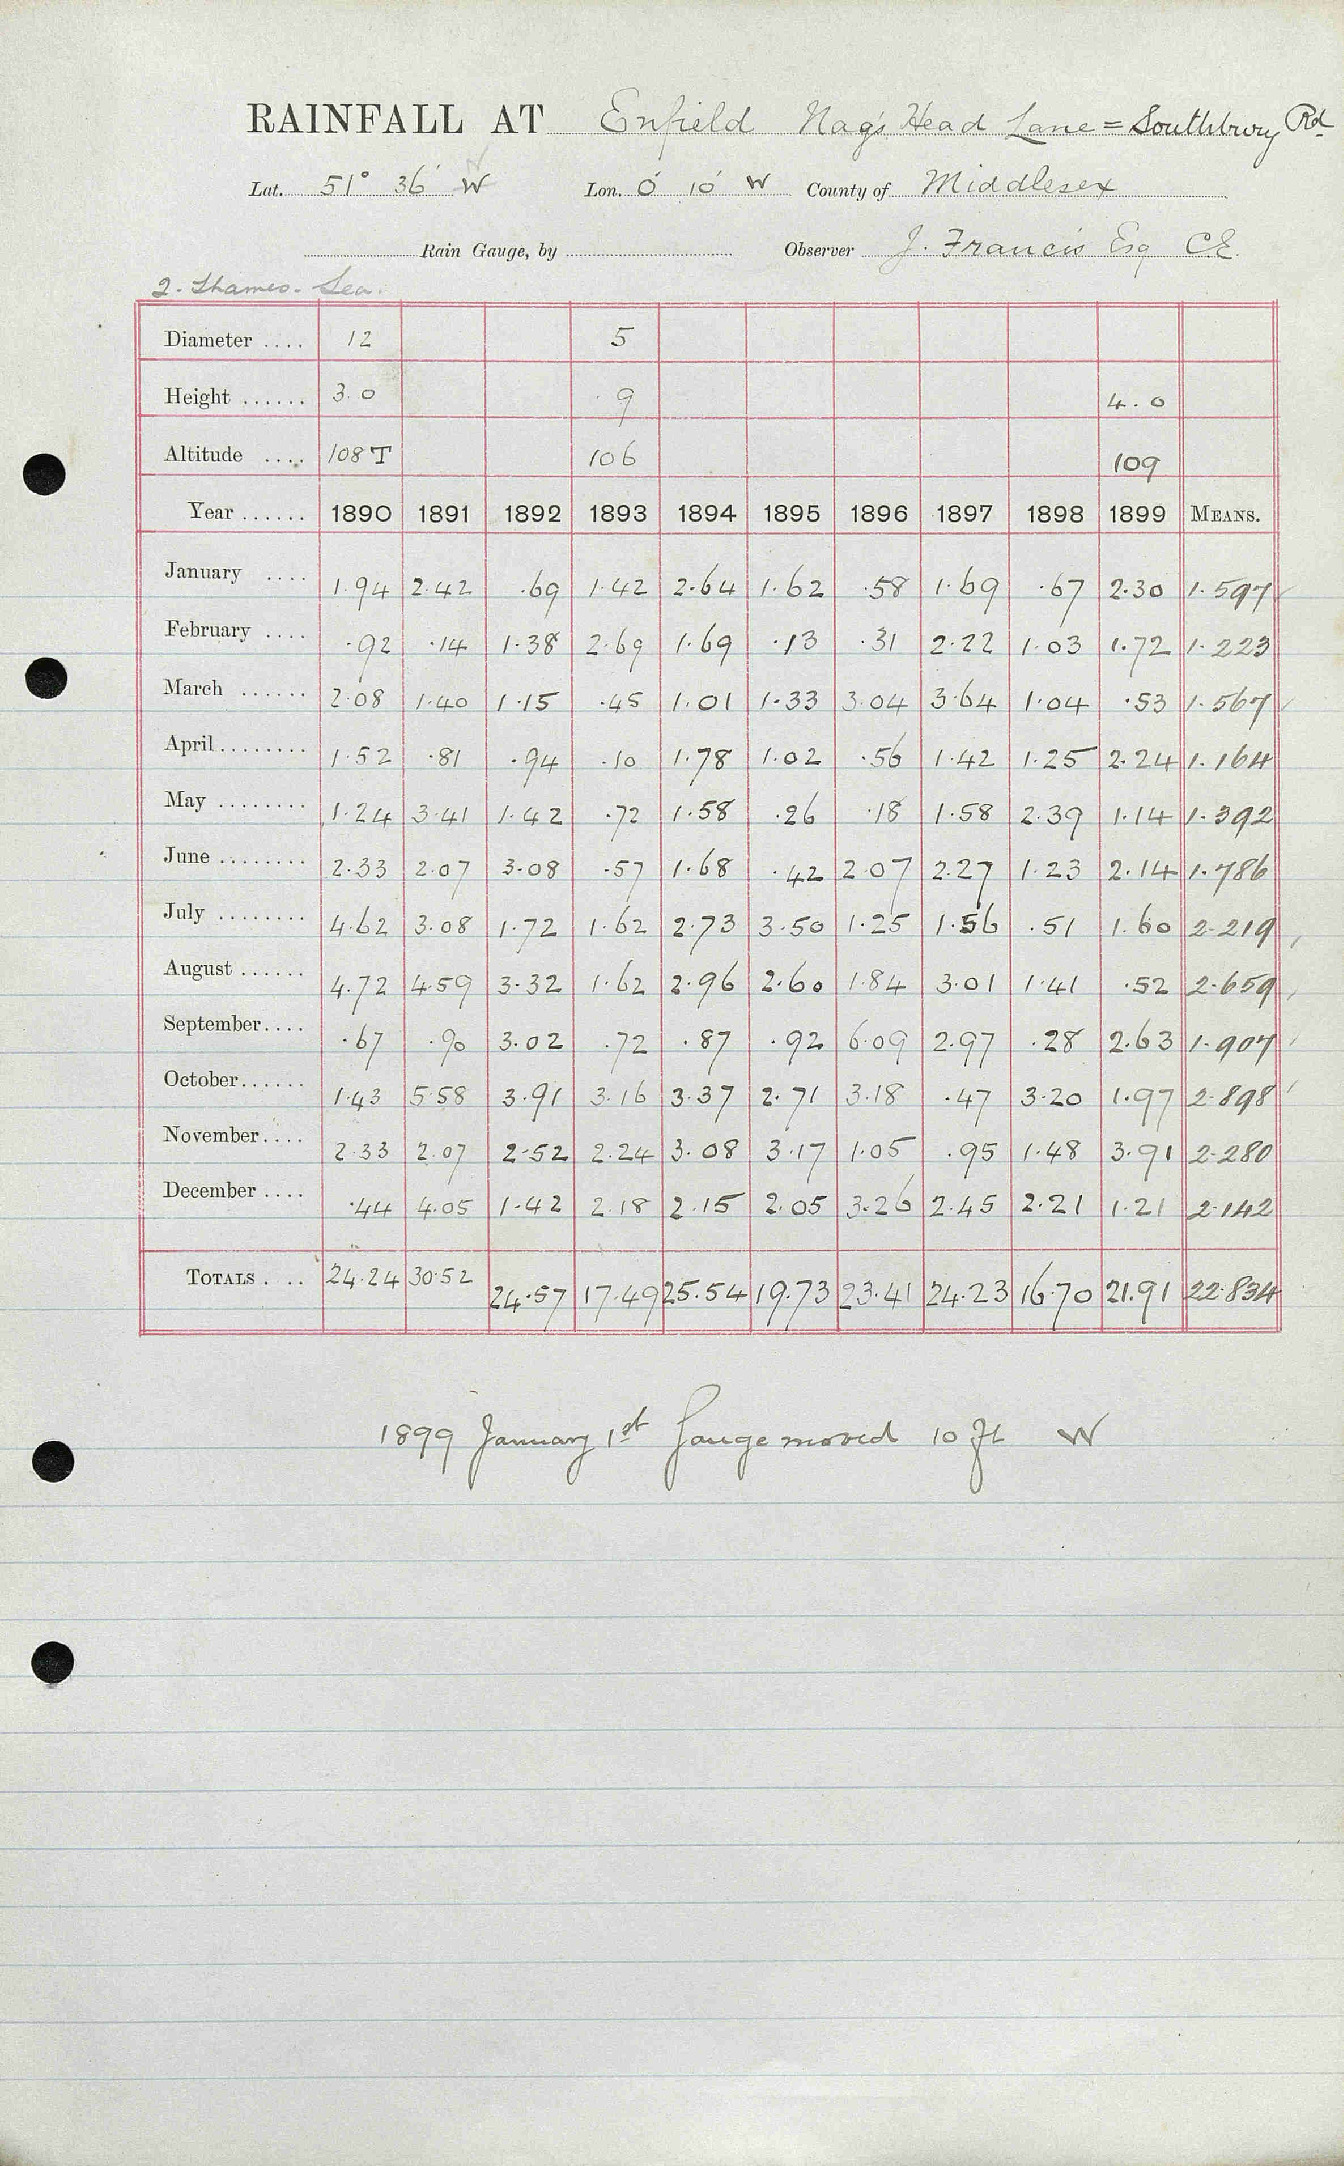 RAINFALL AT Enfield Nag's Head Lane = Southbury Rd
Lat. 51° 36' W Lon. 0° 10' W County of Middlesex
Rain Gauge, by Observer J. Francis Esq CE.
2. Thames. Lea.
Diameter .... 12 5
Height ...... 3.0 9 4.0
Altitude .... 108 T 106 109
Year ...... 1890 1891 1892 1893 1894 1895 1896 1897 1898 1899 MEANS.
January .... 1.94 2.42 .69 1.42 2.64 1.62 .58 1.69 .67 2.30 1.597
February .... .92 .14 1.38 2.69 1.69 .13 .31 2.22 1.03 1.72 1.223
March ...... 2.08 1.40 1.15 .45 1.01 1.33 3.04 3.64 1.04 .53 1.567
April ........ 1.52 .81 .94 .10 1.78 1.02 .56 1.42 1.25 2.24 1.164
May ........ 1.24 3.41 1.42 .72 1.58 .26 .18 1.58 2.39 1.14 1.392
June ........ 2.33 2.07 3.08 .57 1.68 .42 2.07 2.27 1.23 2.14 1.786
July ........ 4.62 3.08 1.72 1.62 2.73 3.50 1.25 1.56 .51 1.60 2.219
August ...... 4.72 4.59 3.32 1.62 2.96 2.60 1.84 3.01 1.41 .52 2.659
September.... .67 .90 3.02 .72 .87 .92 6.09 2.97 .28 2.63 1.907
October...... 1.43 5.58 3.91 3.16 3.37 2.71 3.18 .47 3.20 1.97 2.898
November.... 2.33 2.07 2.52 2.24 3.08 3.17 1.05 .95 1.48 3.91 2.280
December .... .44 4.05 1.42 2.18 2.15 2.05 3.26 2.45 2.21 1.21 2.142
TOTALS . . . . 24.24 30.52 24.57 17.49 25.54 19.73 23.41 24.23 16.70 21.91 22.834
1899 January 1st Gauge moved 10 ft W